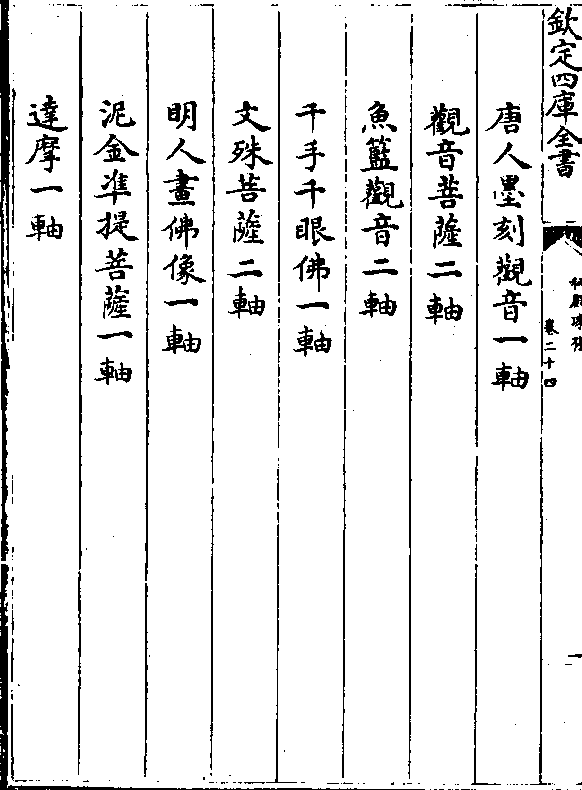 欽定四庫全書
卷二十四
唐人墨刻觀音一軸
觀音菩薩二軸
魚籃觀音二軸
千手千眼佛一軸
文殊菩薩二軸
明人畫佛像一軸
泥金準提菩薩一軸
達摩一軸